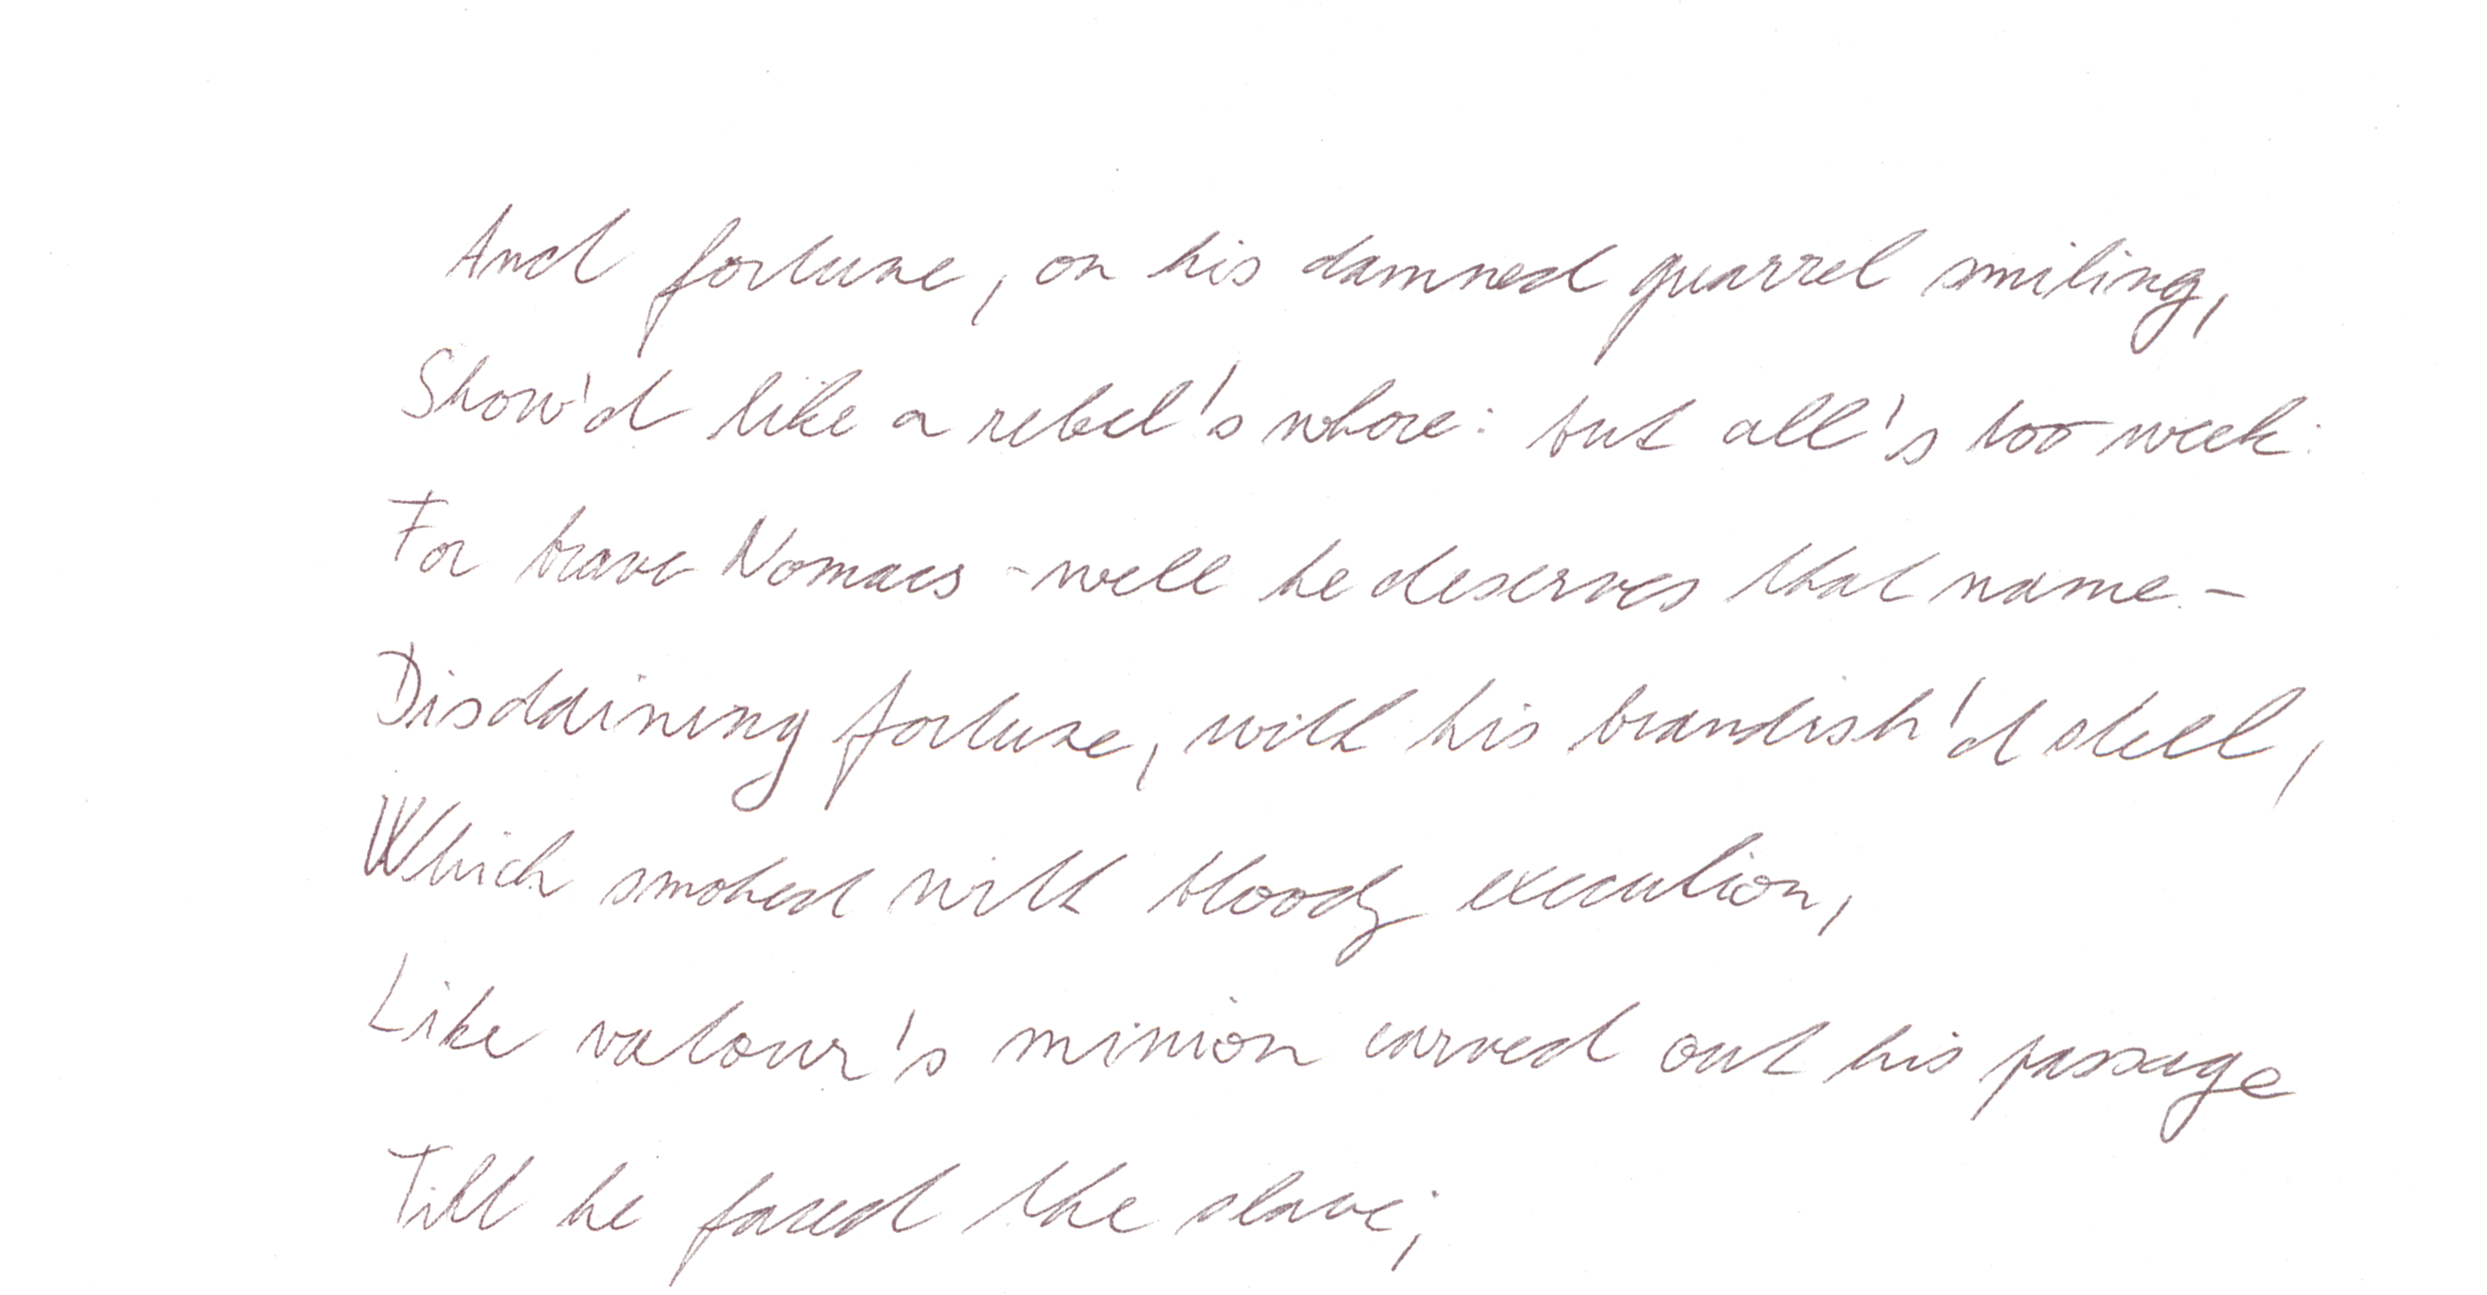 And fortune, on his damned quarrel smiling,
Show'd like a rebel's whore: but all's too week:
For brave Nomacs - well he deserves that name -
Disdaining fortune, with his brandish'd steel,
Which smoked with bloody execution,
Like valour's minion carved out his passage
Till he faced the slave;